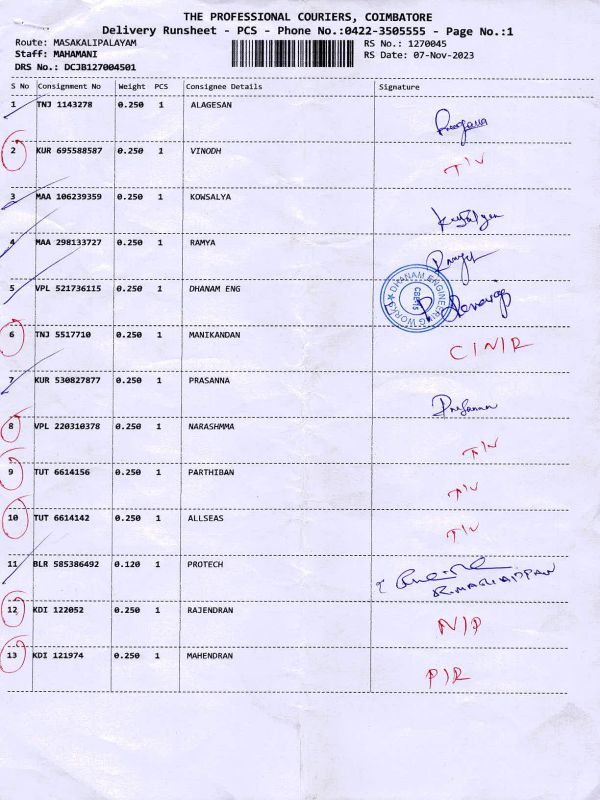 THE PROFESSIONAL COURIERS, COIMBATORE
Delivery Runsheet - PCS - Phone No.:0422-3505555 - Page No.:1
Route: MASAKALIPALAYAM RS No.: 1270045
Staff: MAHAMANI RS Date: 07-Nov-2023
DRS No.: DCJB127004501
S No Consignment No Weight PCS Consignee Details Signature
1 TNJ 1143278 0.250 1 ALAGESAN
2 KUR 695588587 0.250 1 VINODH
3 MAA 106239359 0.250 1 KOWSALYA
4 MAA 298133727 0.250 1 RAMYA
5 VPL 521736115 0.250 1 DHANAM ENG
DHANAM ENGINEERING WORKS
6 TNJ 5517710 0.250 1 MANIKANDAN C/N/R
7 KUR 530827877 0.250 1 PRASANNA
8 VPL 220310378 0.250 1 NARASHMMA
9 TUT 6614156 0.250 1 PARTHIBAN
10 TUT 6614142 0.250 1 ALLSEAS
11 BLR 585386492 0.120 1 PROTECH
12 KDI 122052 0.250 1 RAJENDRAN N/P
13 KDI 121974 0.250 1 MAHENDRAN P/R